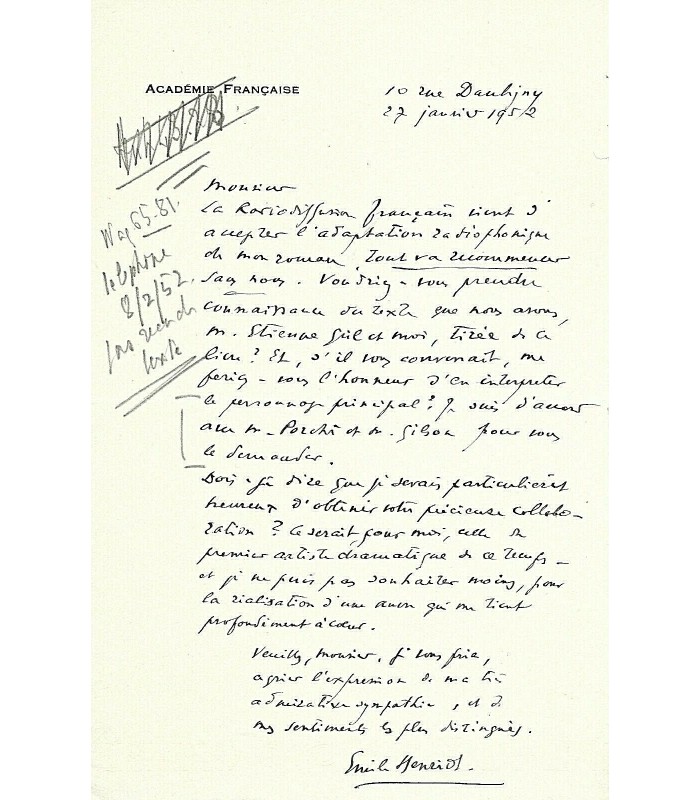 ACADÉMIE FRANÇAISE
10 rue Daubigny
27 janvier 1952
Wag 65-81.
téléphone
8/2/52.
texte
Monsieur
La Radiodiffusion française vient d'
accepter l'adaptation radiophonique
de mon roman, Tout va recommencer
sans nous. Voudriez-vous prendre
connaissance du texte que nous avons,
M. Etienne Gril et moi, tirée de ce
livre ? Et, s'il vous convenait, me
feriez-vous l'honneur d'en interpréter
le personnage principal ? Je suis d'accord
avec M. Porché et M. Gilson pour vous
le demander.
Dois-je dire que je serais particulièrement
heureux d'obtenir votre précieuse collabo-
ration ? Ce serait pour moi, celle du
premier artiste dramatique de ce temps -
et je ne puis pas souhaiter moins, pour
la réalisation d'une œuvre qui me tient
profondément à cœur.
Veuillez, Monsieur, je vous prie,
agréer l'expression de ma très
admirative sympathie, et de
mes sentiments les plus distingués.
Emile Henriot.